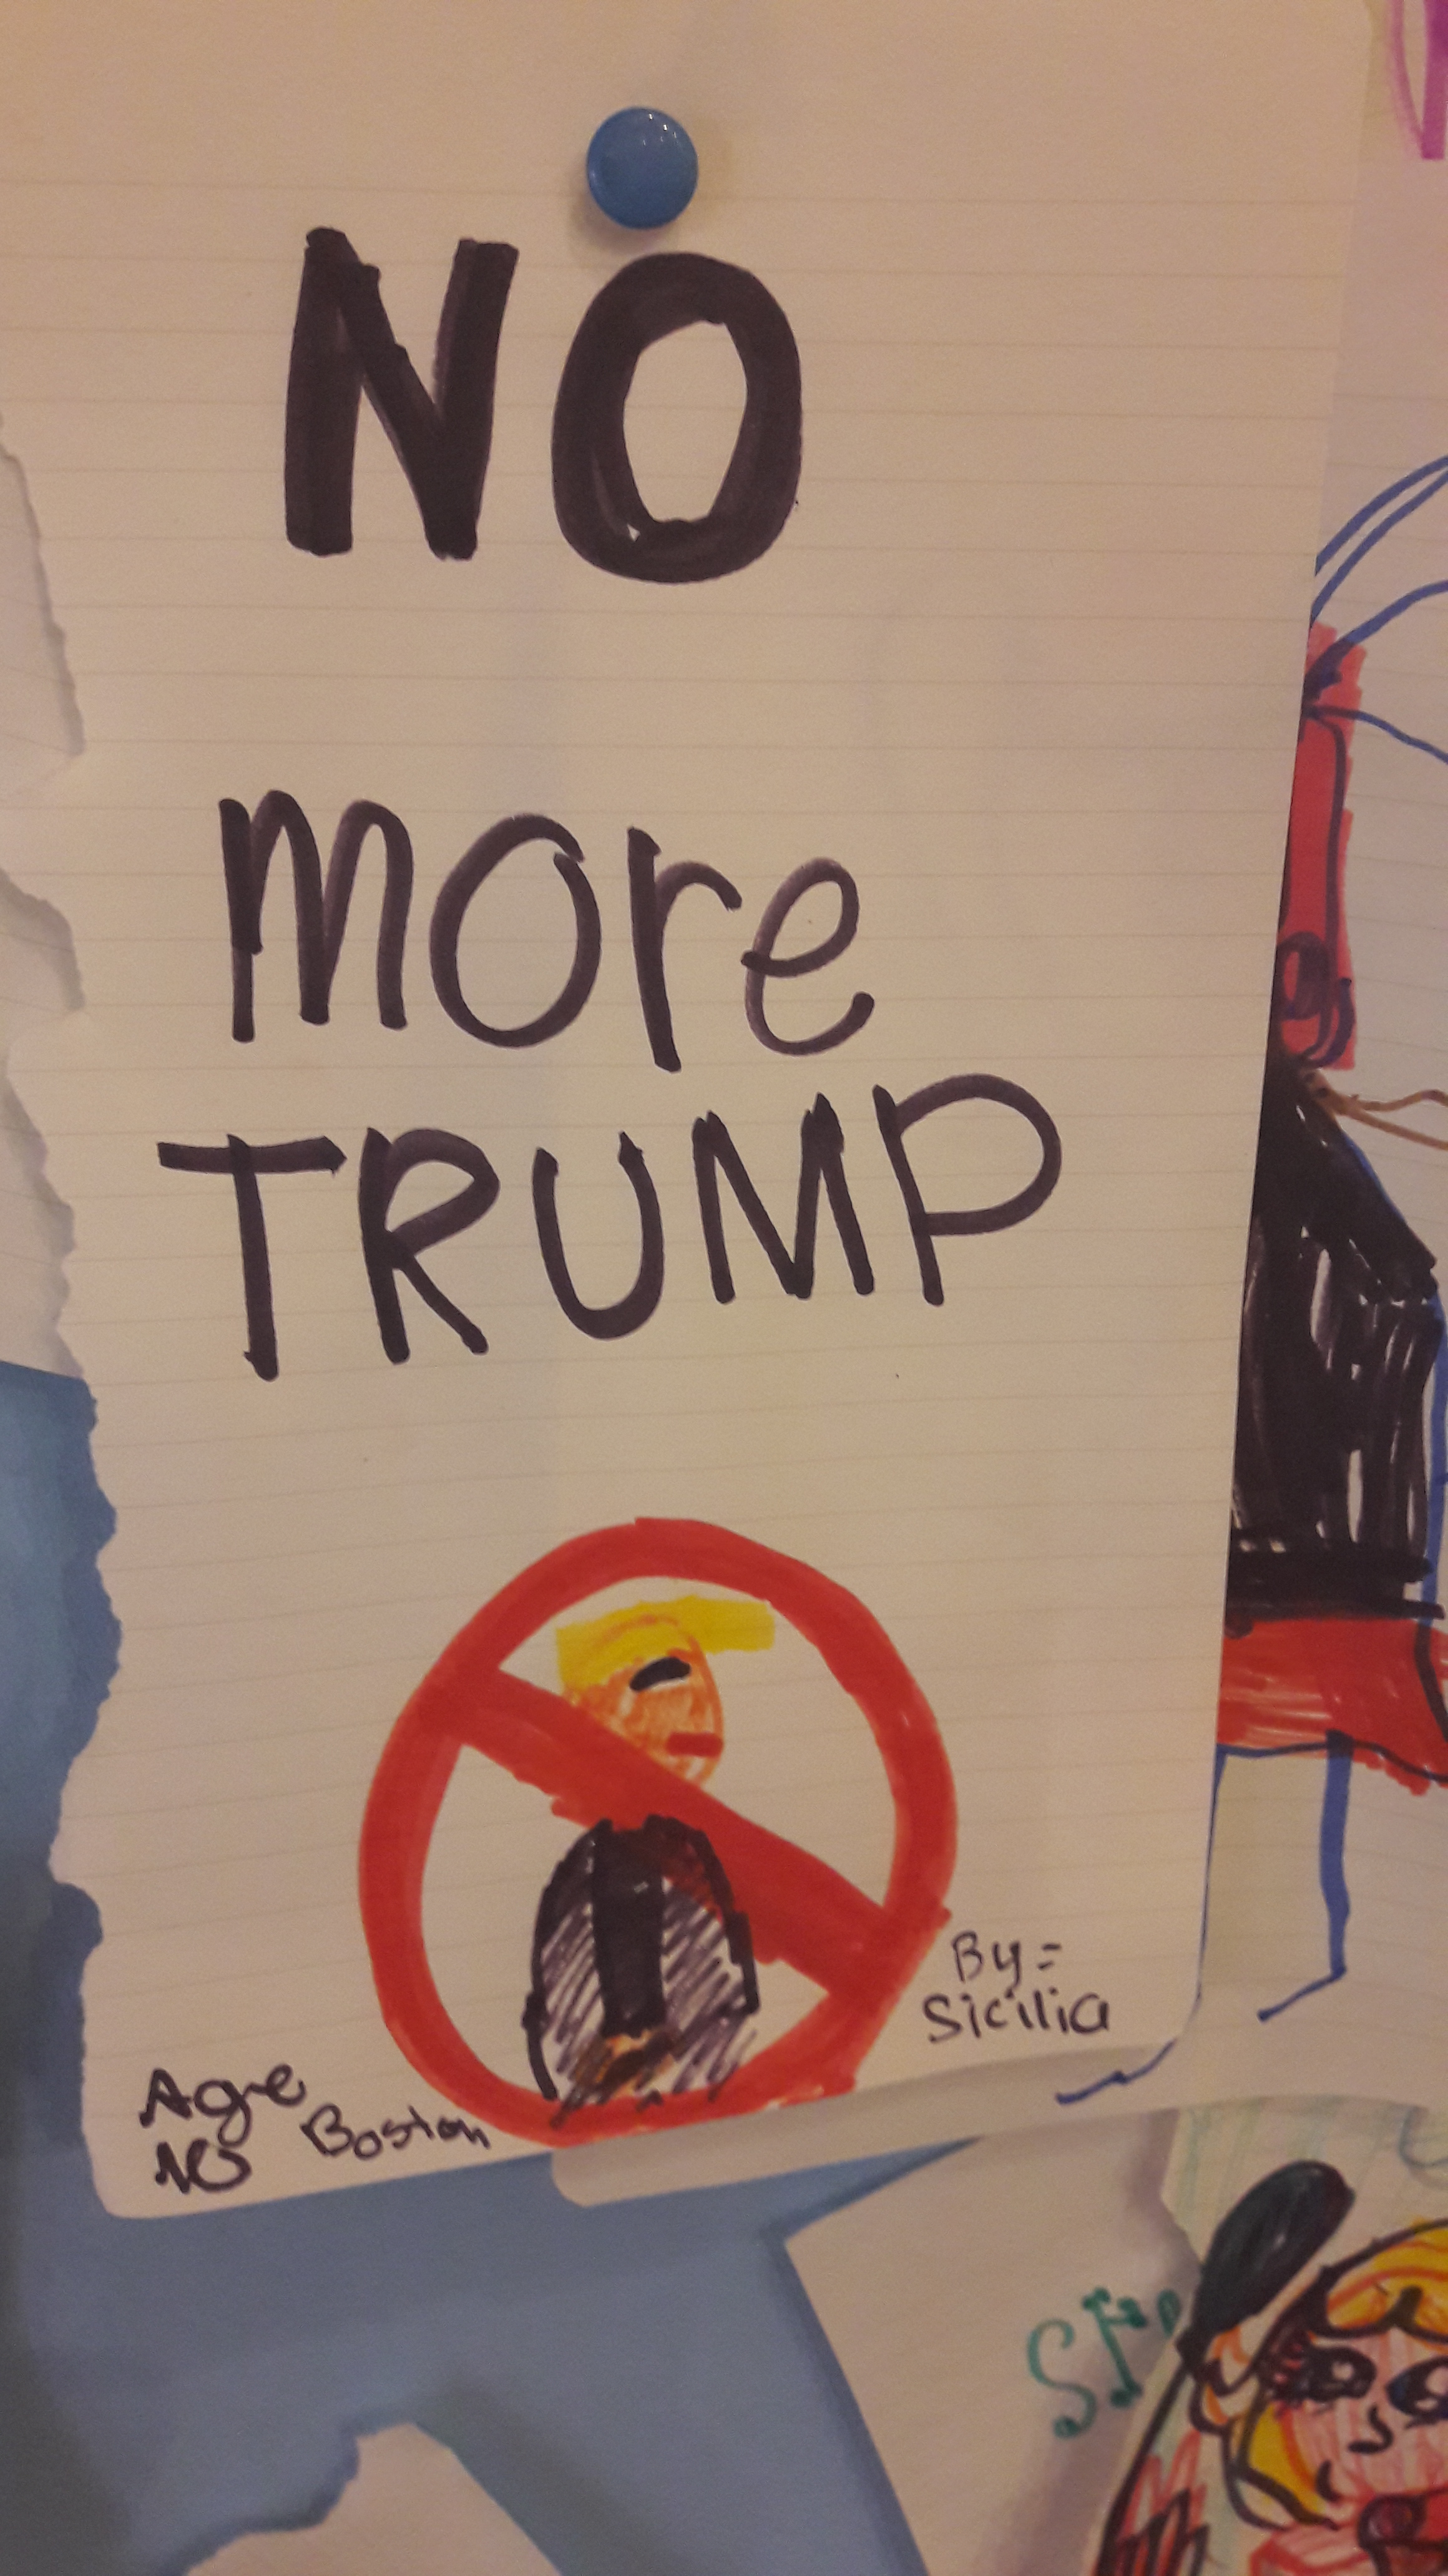 NO
more
TRUMP
By=
Sicilia
Age
10 Boston